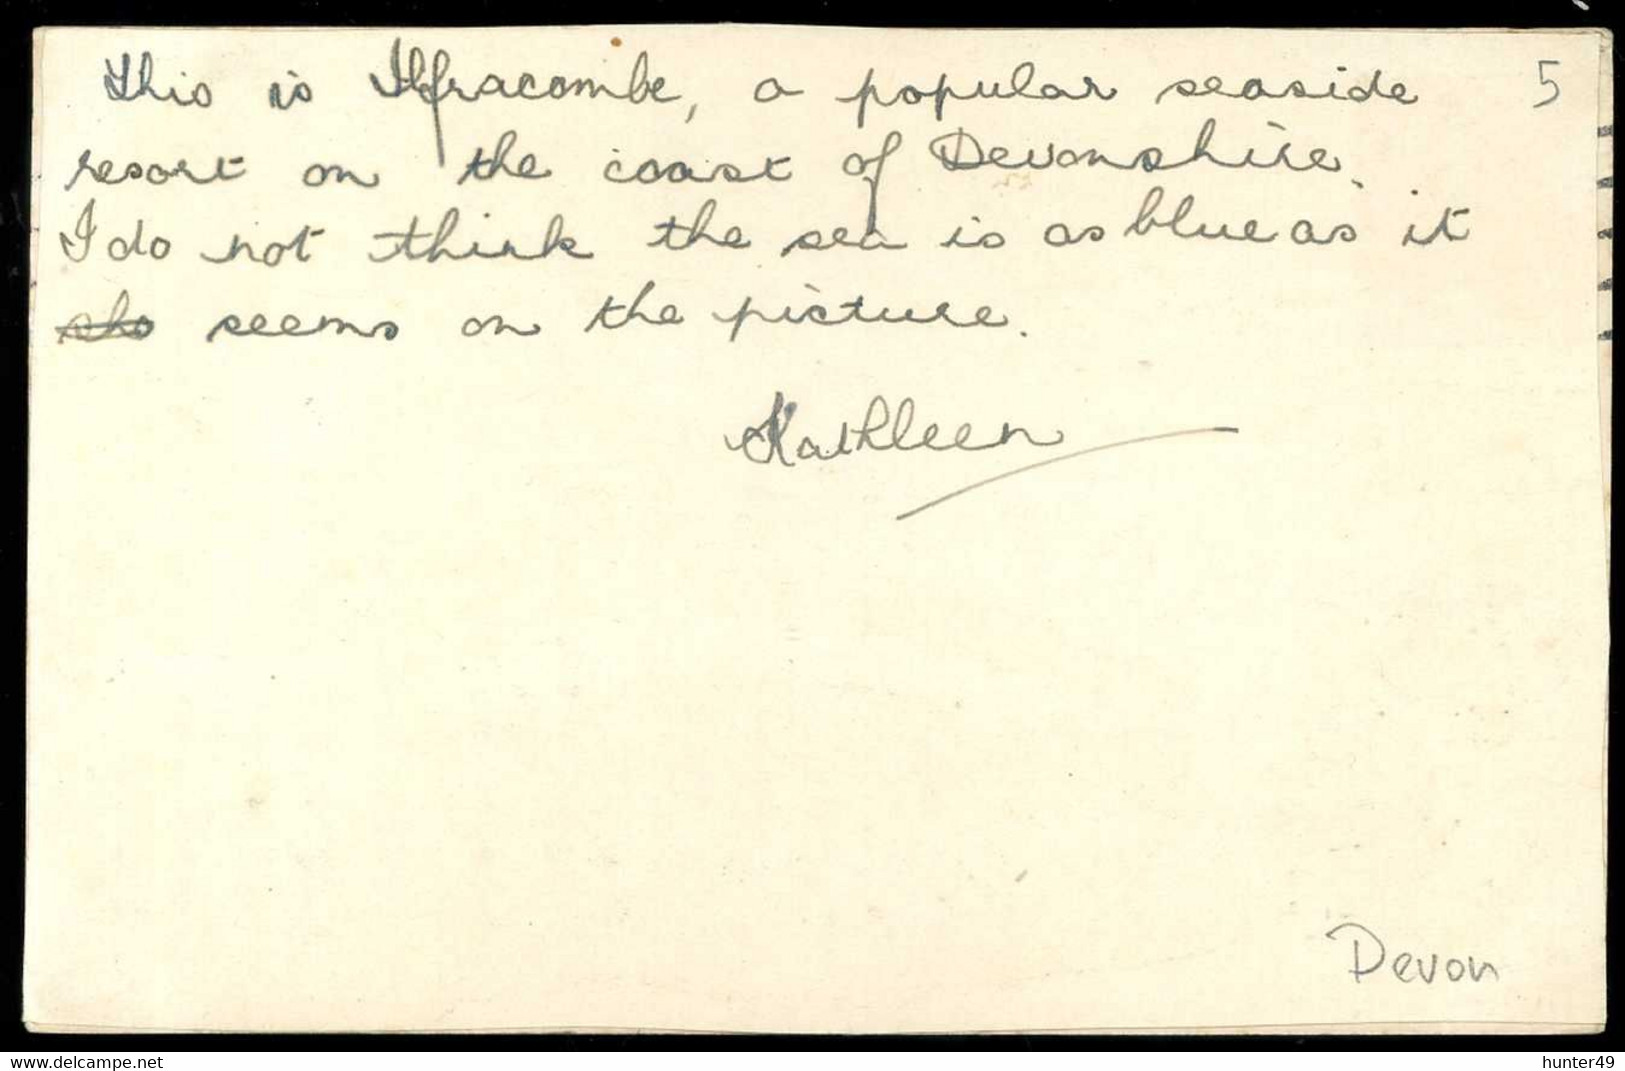 This is Ilfracombe, a popular seaside 5
resort on the coast of Devonshire.
I do not think the sea is as blue as it
sho seems on the picture.
Kathleen
Devon
www.delcampe.net hunter49